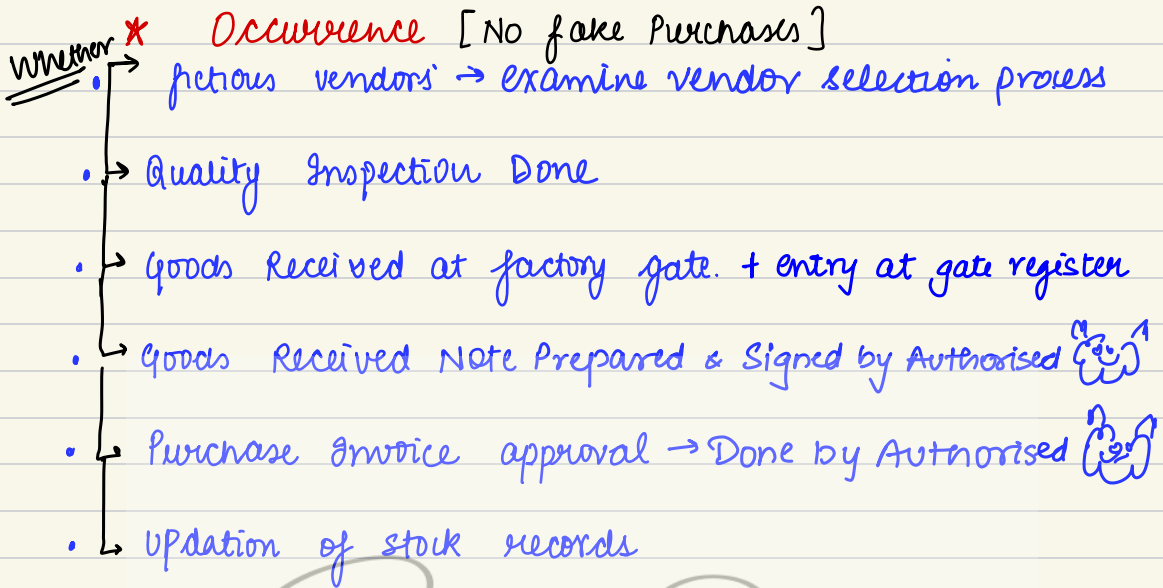 * Occurrence [No fake Purchases]
Whether
• fictious vendors → examine vendor selection process
• Quality Inspection Done
• Goods Received at factory gate. + entry at gate register
• Goods Received Note Prepared & Signed by Authorised
• Purchase Invoice approval → Done by Authorised
• Updation of stock records